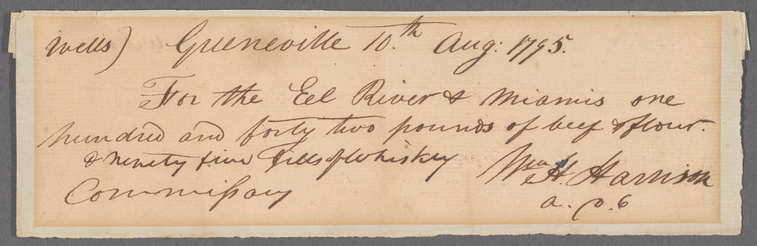 Wells) Greeneville 10.th Aug: 1795.
For the Eel River & Miamis one
hundred and forty two pounds of beef & flour.
& Ninety five Gills of Whiskey
Wm H. Harrison
Commissary
a. D. C